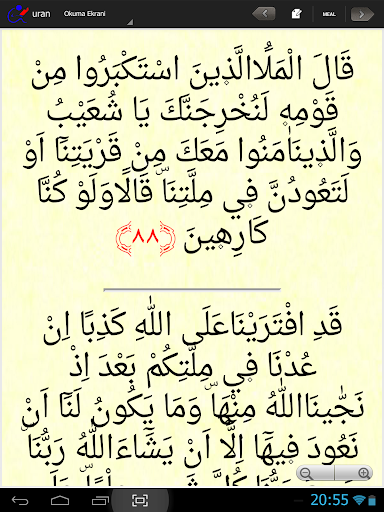 uran Okuma Ekrani MEAL
قَالَ الْمَلَاُ الَّذِينَ اسْتَكْبَرُوا مِنْ
قَوْمِهِ لَنُخْرِجَنَّكَ يَا شُعَيْبُ
وَالَّذِينَ اٰمَنُوا مَعَكَ مِنْ قَرْيَتِنَٓا اَوْ
لَتَعُودُنَّ فِي مِلَّتِنَاۜ قَالَ اَوَلَوْ كُنَّا
كَارِهِينَ ﴿٨٨﴾
قَدِ افْتَرَيْنَا عَلَى اللّٰهِ كَذِبًا اِنْ
عُدْنَا فِي مِلَّتِكُمْ بَعْدَ اِذْ
نَجّٰينَا اللّٰهُ مِنْهَاۜ وَمَا يَكُونُ لَنَٓا اَنْ
نَعُودَ فِيهَٓا اِلَّٓا اَنْ يَشَٓاءَ اللّٰهُ رَبُّنَاۜ
20:55